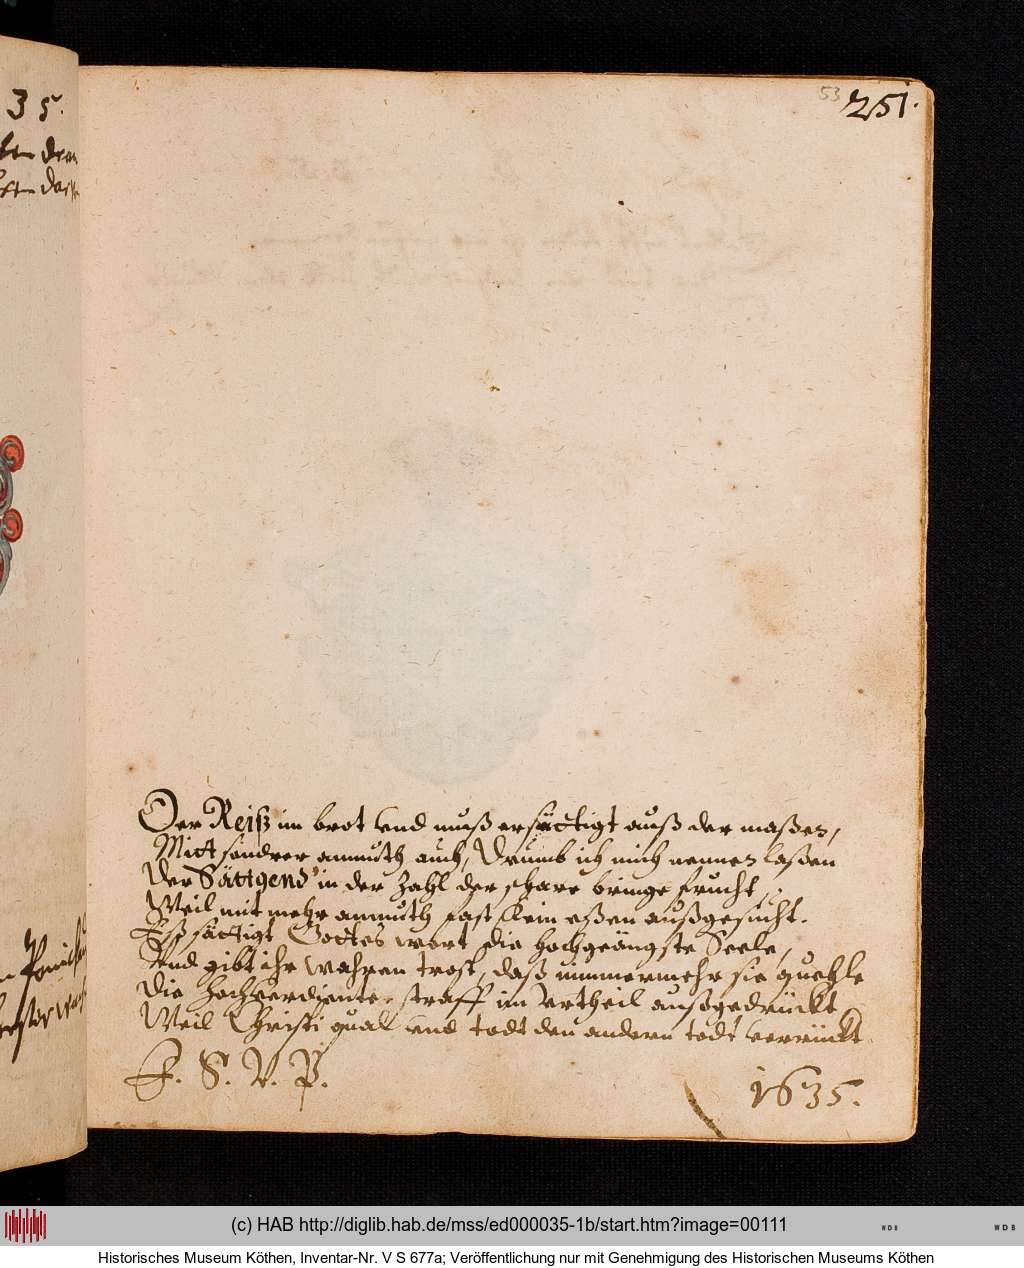 35.
53
251.
Der Reiß im brot vnd muß ersättigt auß der maßen,
Mitt sondrer anmuth auch, Drumb ich mich nennen laßen
Der Sättgend' in der Zahl der schare bringe frucht,
Weil mit mehr anmuth fast kein eßen außgesucht.
Eß sättigt Gottes wort die hochgeängste Seele,
Vnd gibt ihr wahren trost, daß nimmermehr sie quehle
Die hochverdjente straff im Vrtheil außgedrückt
Weil Christi qual vnd todt den andern todt verrückt
F. S. V. P.
1635.
(c) HAB http://diglib.hab.de/mss/ed000035-1b/start.htm?image=00111
WDB
WDB
Historisches Museum Köthen, Inventar-Nr. V S 677a; Veröffentlichung nur mit Genehmigung des Historischen Museums Köthen